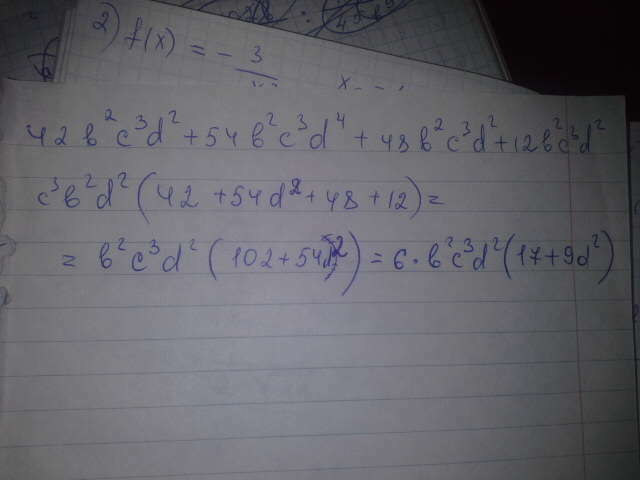 2) f(x) = - 3
x
42b²c³d² + 54b²c³d⁴ + 48b²c³d² + 12b²c³d²
c³b²d² (42 + 54d² + 48 + 12) =
= b²c³d² (102 + 54d²) = 6 · b²c³d² (17 + 9d²)